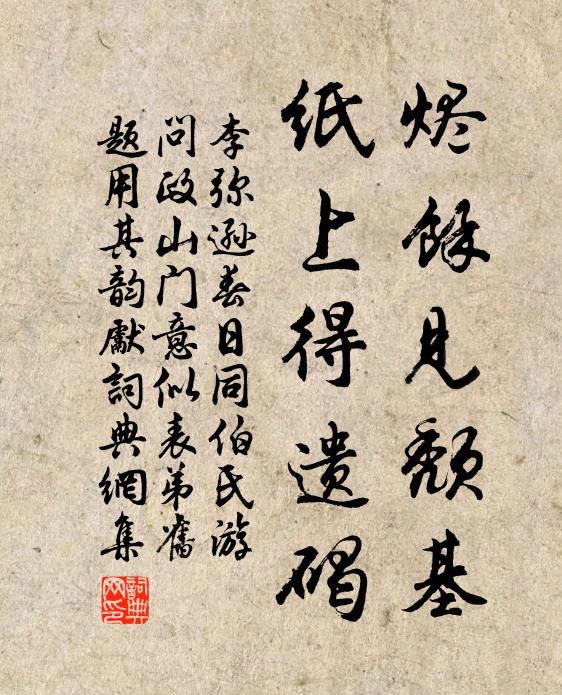 烬餘见颓基
纸上得遗碣
李弥逊春日同伯氏游
问政山门意似表弟舊
题用其韵獻詞典網集
詞典